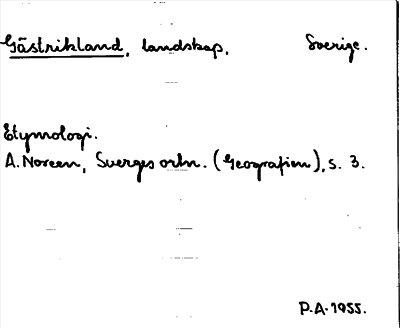 Gästrikland, landskap, Sverige.
Etymologi.
A. Noreen, Sveriges ortn. (Geografien), s. 3.
P.A. 1955.